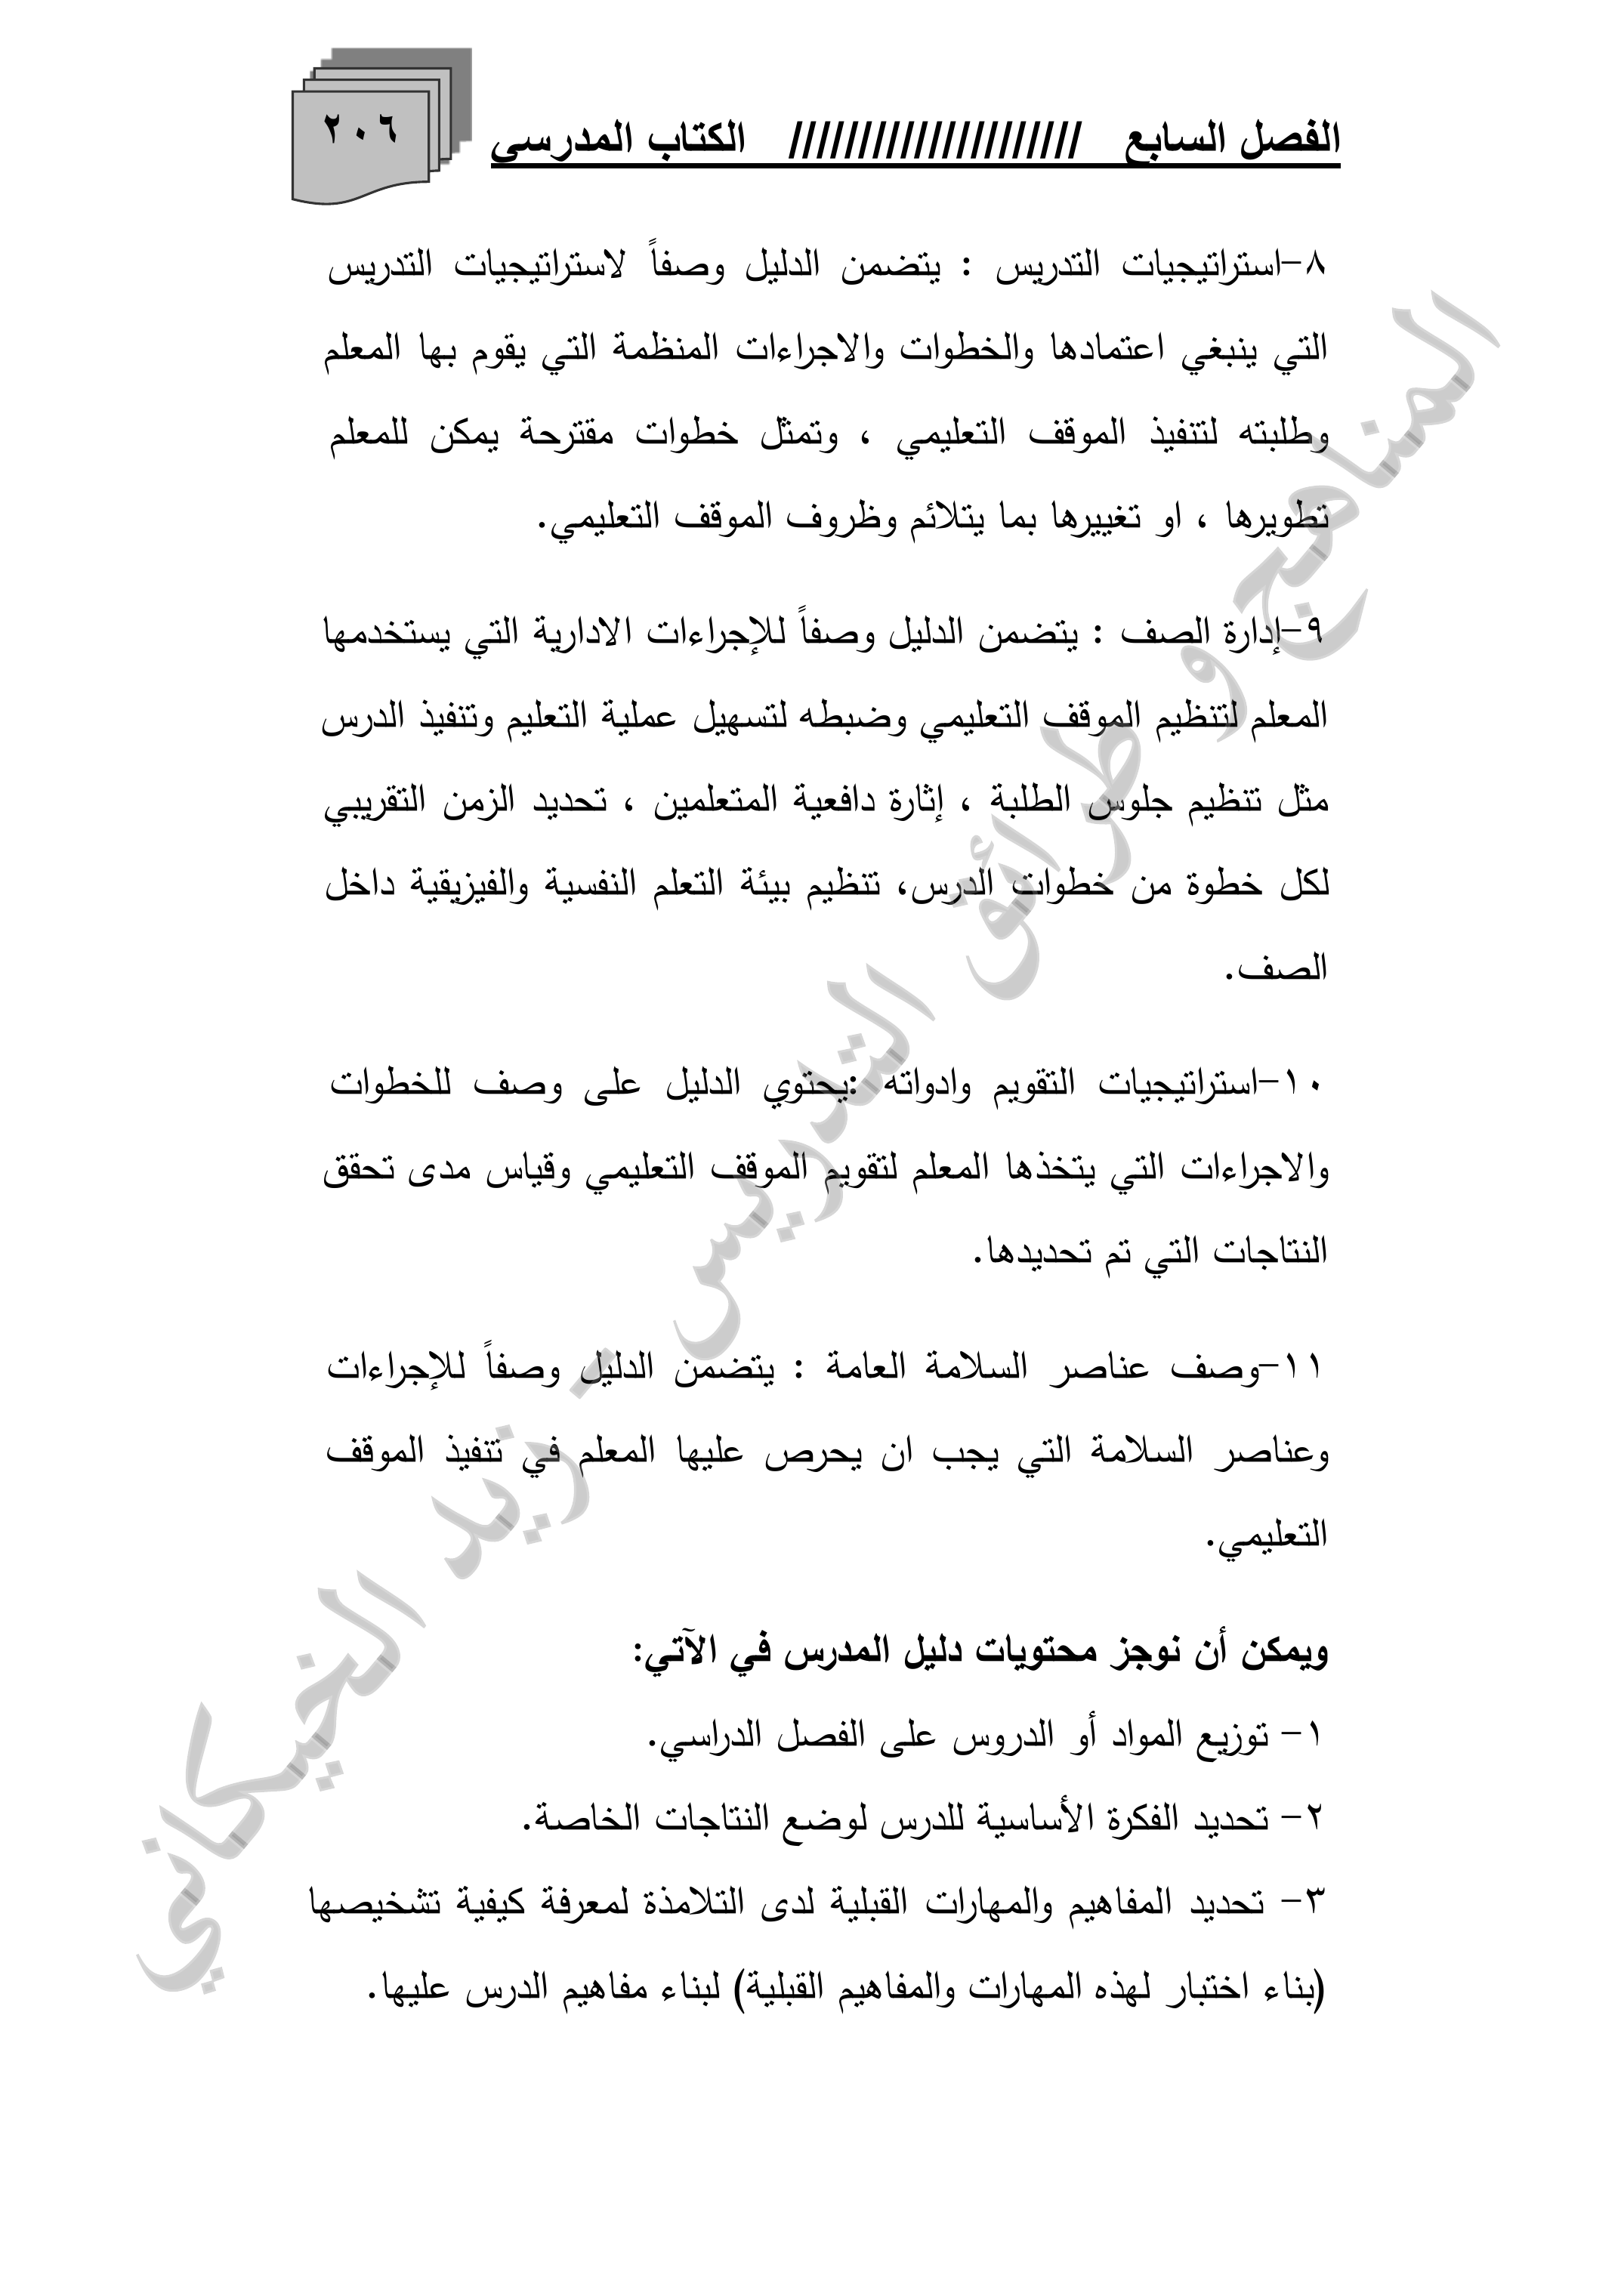 الفصل السابع ///////////////////// الكتاب المدرسي
٢٠٦
٨-استراتيجيات التدريس : يتضمن الدليل وصفاً لاستراتيجيات التدريس
التي ينبغي اعتمادها والخطوات والاجراءات المنظمة التي يقوم بها المعلم
وطلبته لتنفيذ الموقف التعليمي ، وتمثل خطوات مقترحة يمكن للمعلم
تطويرها ، او تغييرها بما يتلائم وظروف الموقف التعليمي.
٩-إدارة الصف : يتضمن الدليل وصفاً للإجراءات الادارية التي يستخدمها
المعلم لتنظيم الموقف التعليمي وضبطه لتسهيل عملية التعليم وتنفيذ الدرس
مثل تنظيم جلوس الطلبة ، إثارة دافعية المتعلمين ، تحديد الزمن التقريبي
لكل خطوة من خطوات الدرس، تنظيم بيئة التعلم النفسية والفيزيقية داخل
الصف.
١٠-استراتيجيات التقويم وادواته :يحتوي الدليل على وصف للخطوات
والاجراءات التي يتخذها المعلم لتقويم الموقف التعليمي وقياس مدى تحقق
النتاجات التي تم تحديدها.
١١-وصف عناصر السلامة العامة : يتضمن الدليل وصفاً للإجراءات
وعناصر السلامة التي يجب ان يحرص عليها المعلم في تنفيذ الموقف
التعليمي.
ويمكن أن نوجز محتويات دليل المدرس في الآتي:
١- توزيع المواد أو الدروس على الفصل الدراسي.
٢- تحديد الفكرة الأساسية للدرس لوضع النتاجات الخاصة.
٣- تحديد المفاهيم والمهارات القبلية لدى التلامذة لمعرفة كيفية تشخيصها
(بناء اختبار لهذه المهارات والمفاهيم القبلية) لبناء مفاهيم الدرس عليها.
المناهج و طرائق التدريس - زيد الخيكاني